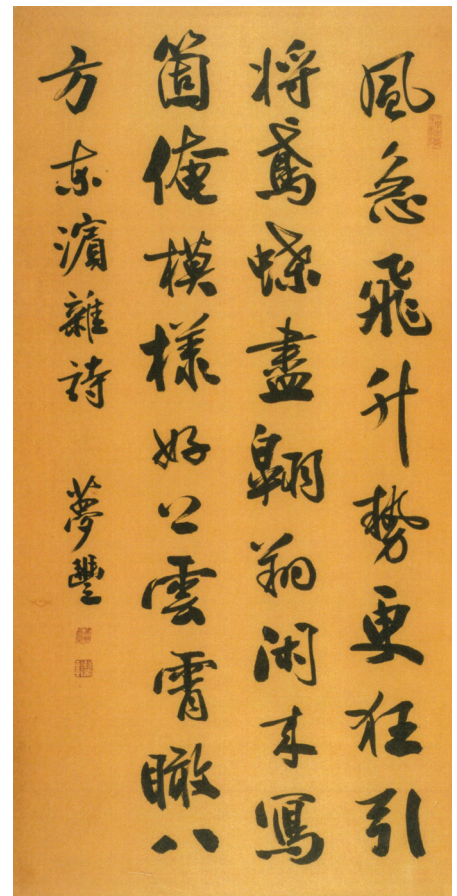 風急飛升勢更狂引
将鳶蝶盡翺翔闲来寫
箇俺模樣好上雲霄瞰八
方 東濱雜詩 夢豐